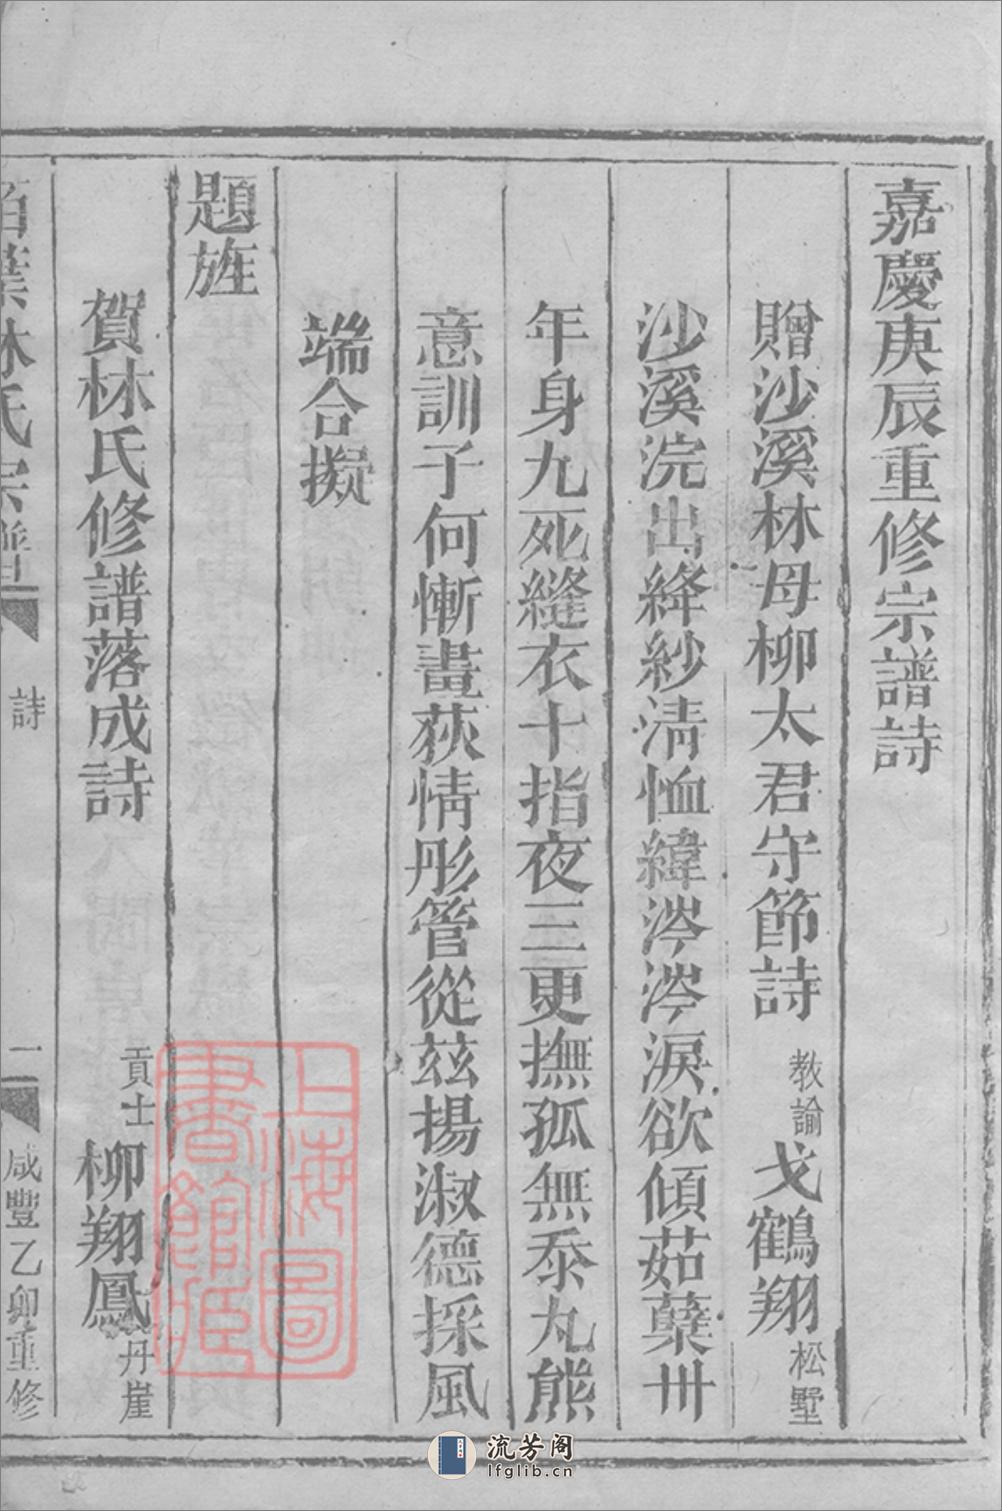 嘉慶庚辰重修宗譜詩
贈沙溪林母柳太君守節詩 教諭 戈鶴翔 松墅
沙溪浣出絳紗清恤緯涔涔淚欲傾茹蘖卅
年身九死縫衣十指夜三更撫孤無忝丸熊
意訓子何慚畫荻情彤管從茲揚淑德採風
端合擬
題旌
賀林氏修譜落成詩 貢士 柳翔鳳 丹崖
林氏宗譜 詩 一 咸豐乙卯重修
上海圖書館藏
流芳阁
lfglib.cn